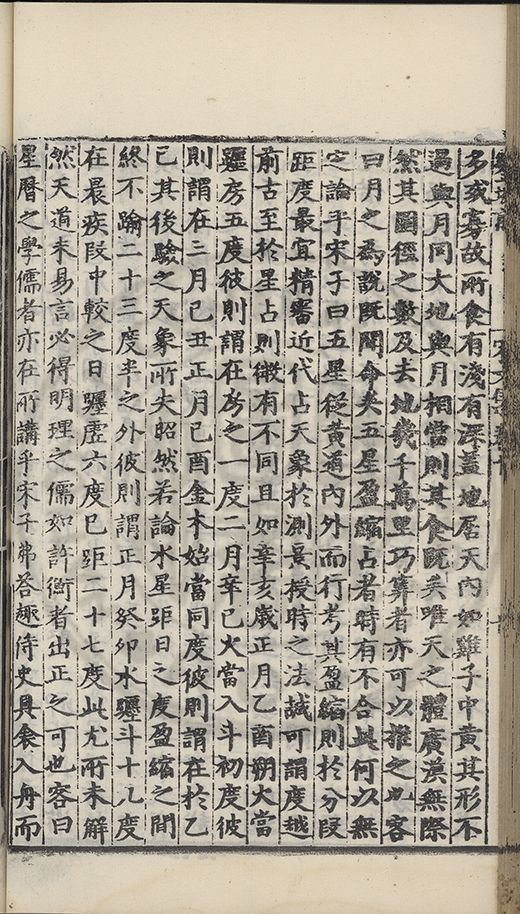 多或寡故所食有淺有深蓋地居天內如雞子中黃其形不
過與月同大地與月相當則其食既矣唯天之體廣漠無際
然其圓徑之數及去地幾千萬里巧筭者亦可以推之也客
曰月之為說既聞命矣五星盈縮占者時有不合此何以無
定論乎宋子曰五星從黃道內外而行考其盈縮則於分段
距度最宜精審近代占天象於測景授時之法誠可謂度越
前古至於星占則微有不同且如辛亥歲正月乙酉朔火當
躔房五度彼則謂在房之一度二月辛巳火當入斗初度彼
則謂在三月己丑正月己酉金木始當同度彼則謂在於乙
已其後驗之天象所失昭然若論水星距日之度盈縮之間
終不踰二十三度半之外彼則謂正月癸卯水躔斗十八度
在晨疾段中較之日躔虛六度巳距二十七度此尤所未解
然天道未易言必得明理之儒如許衡者出正之可也客曰
星曆之學儒者亦在所講乎宋子弗答趣侍史具衾入舟而